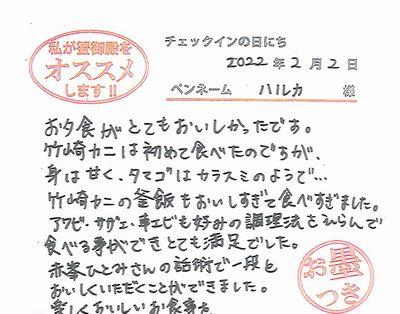 私が蟹御殿を
オススメ
します!!
チェックインの日にち
2022年2月2日
ペンネーム ハルカ 様
お夕食がとてもおいしかったです。
竹崎カニは初めて食べたのですが、
身は甘く、タマゴはカラスミのようで…
竹崎カニの釜飯もおいしすぎて食べすぎました。
アワビ・サザエ・車エビも好みの調理法をえらんで
食べる事ができとても満足でした。
赤峯ひとみさんの話術で一段と
おいしくいただくことができました。
楽しくおいしいお食事を
お墨
つき